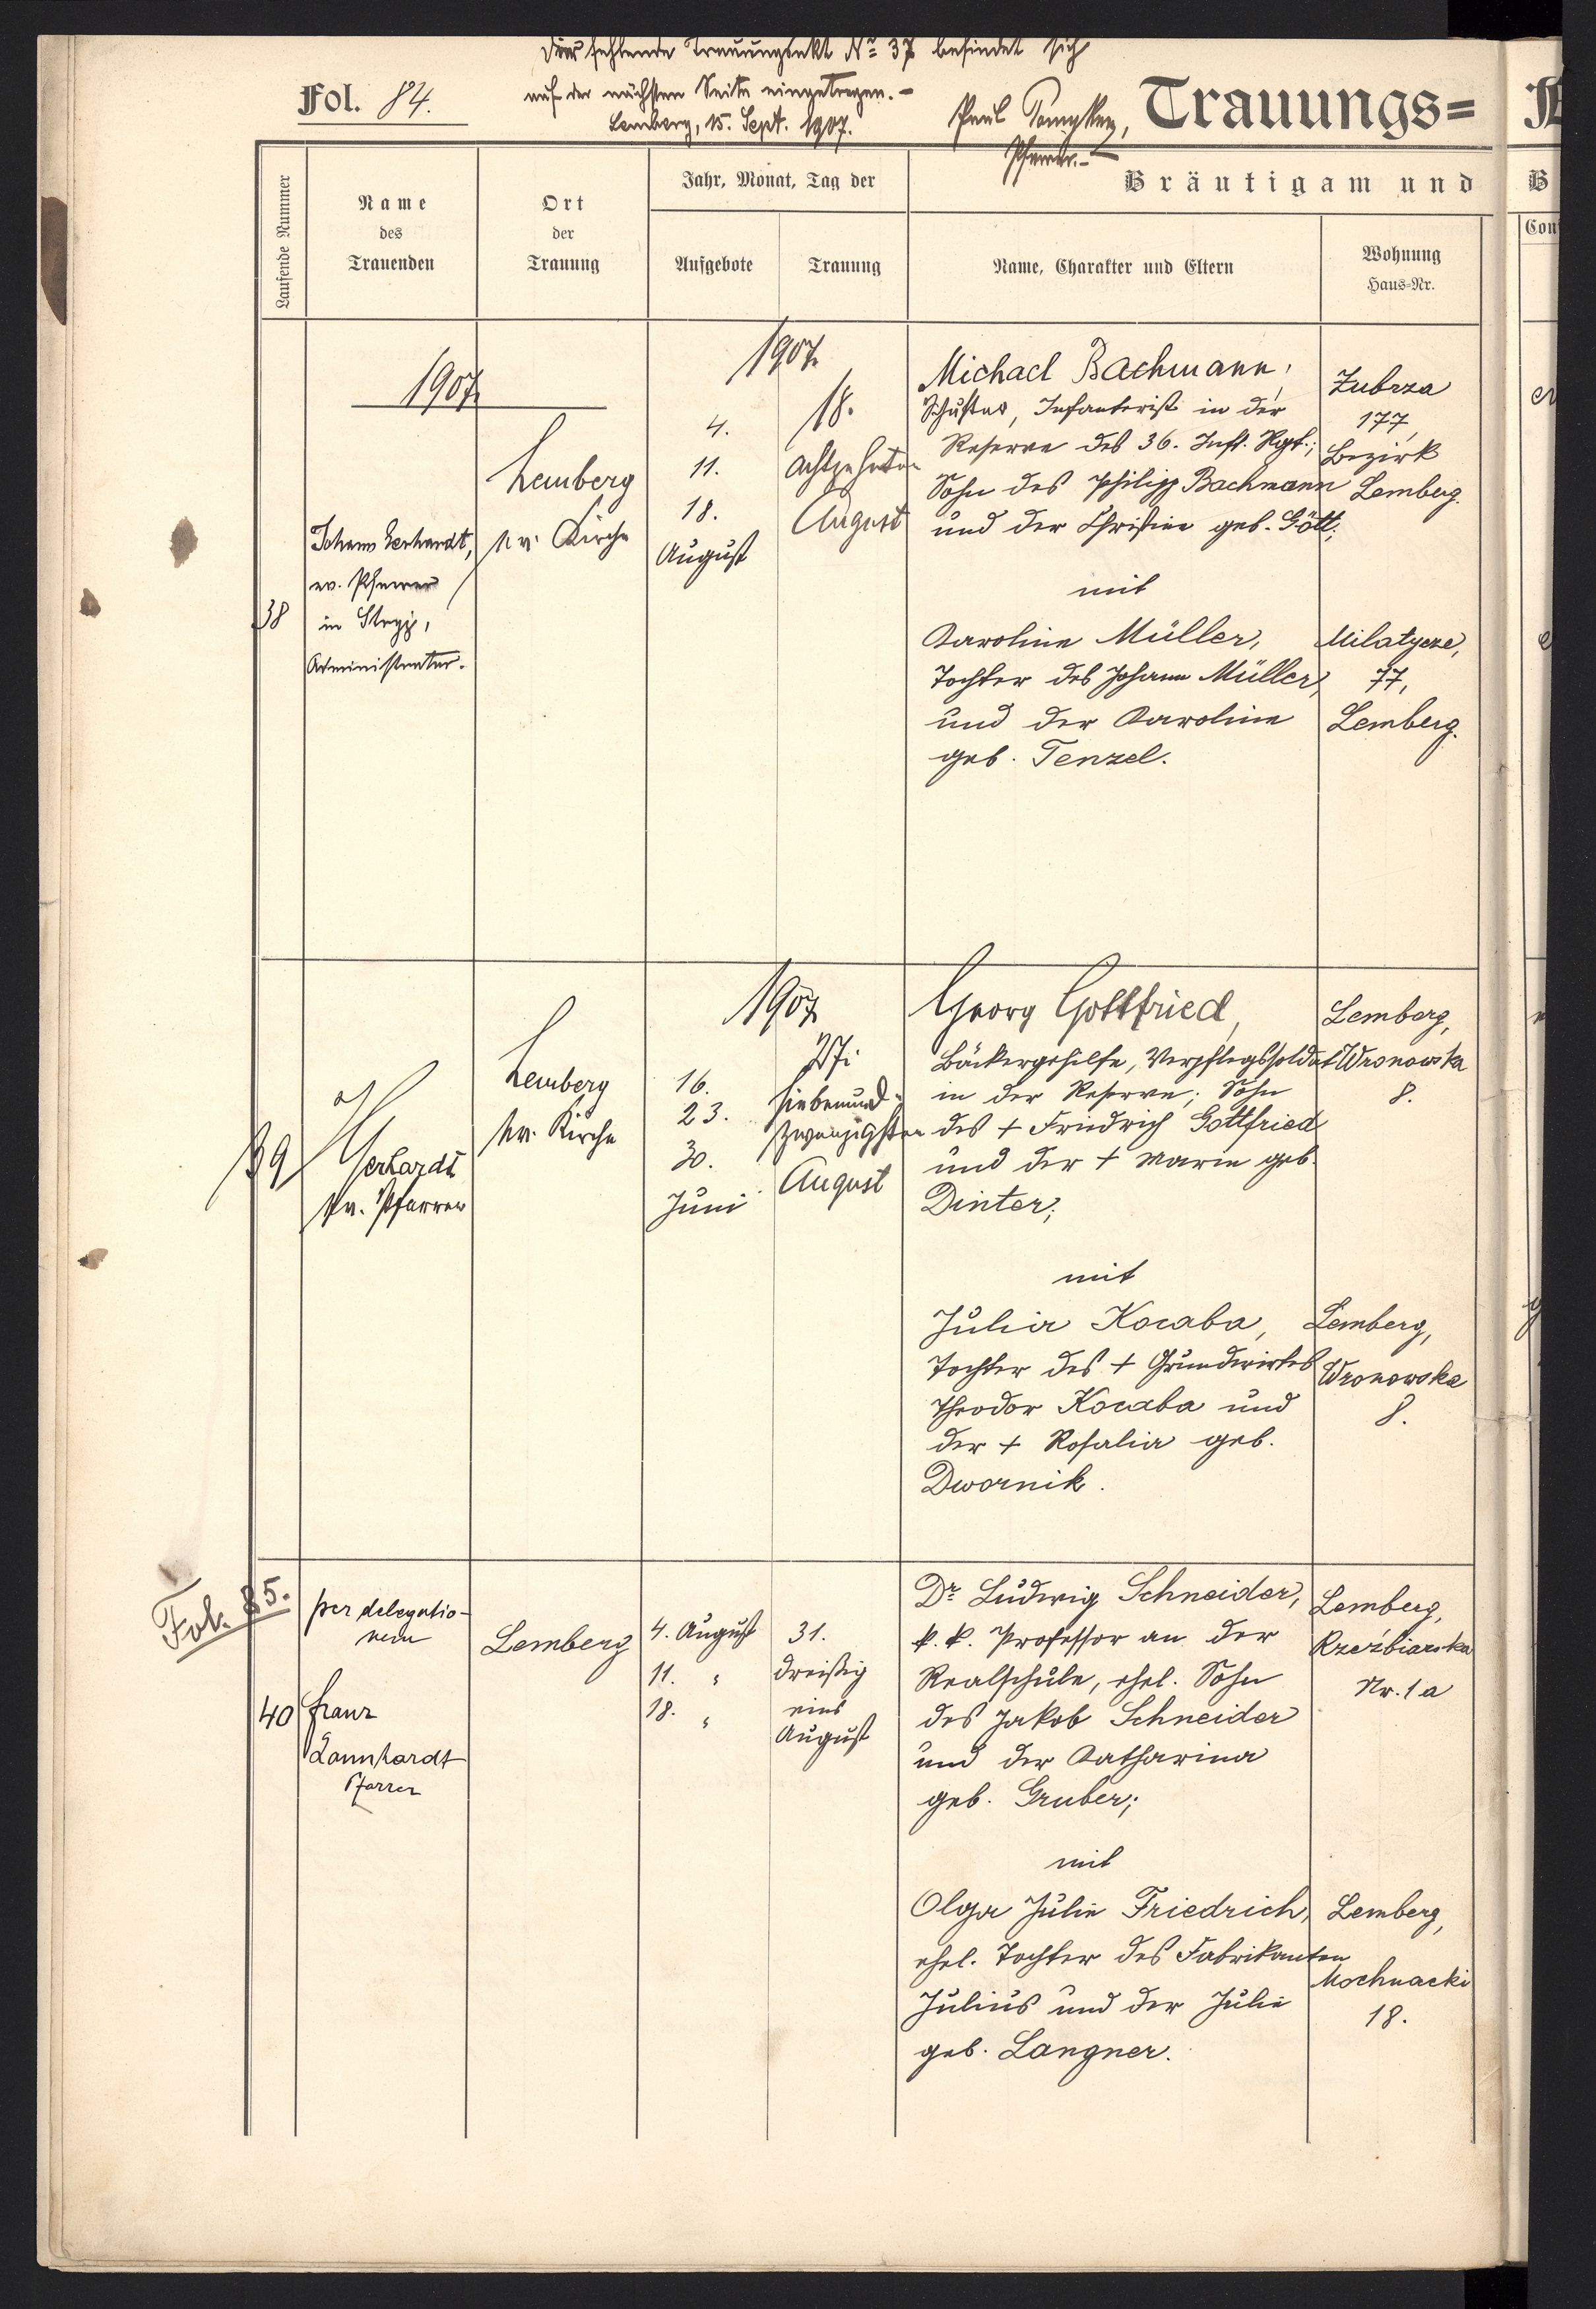 Der fehlende Trauungsakt No 37 befindet sich
auf der nächsten Seite eingetragen. –
Lemberg, 15. Sept. 1907.
Paul
Pfarrer. –
Fol. 84.
Trauungs=
Laufende Nummer
Name
des
Trauenden
Ort
der
Trauung
Jahr, Monat, Tag der
Aufgebote
Trauung
Bräutigam und
Name, Charakter und Eltern
Wohnung
Haus=Nr.
B
Con
1907.
38
Johann Gerhardt,
ev. Pfarrer
in Stryj,
Administrator.
Lemberg
ev. Kirche
4.
11.
18.
August
1907.
18.
achtzehnten
August
Michael Bachmann,
Schuster, Infanterist in der
Reserve des 36. Inft. Rgt.;
Sohn des Philipp Bachmann
und der Christine geb. Gött;
mit
Karoline Müller,
Tochter des Johann Müller,
und der Karoline
geb. Tenzel.
Zubrza
177,
Bezirk
Lemberg.
Milatycze,
77,
Lemberg.
39
Gerhardt
ev. Pfarrer
Lemberg
ev. Kirche
16.
23.
30.
Juni
1907
27.
siebenund-
zwanzigsten
August
Georg Gottfried,
Bäckergehilfe, Verpflegssoldat
in der Reserve; Sohn
des + Friedrich Gottfried
und der + Marie geb.
Dinter;
mit
Julia Kocaba,
Tochter des + Grundwirtes
Theodor Kocaba und
der + Rosalia geb.
Dwornik.
Lemberg,
Wronowska
8.
Lemberg,
Wronowska
8.
Fol. 85.
40
per delegatio-
nem
Franz
Lannhardt
Pfarrer
Lemberg
4. August
11. "
18. "
31.
dreißig
eins
August
Dr Ludwig Schneider,
k. k. Professor an der
Realschule, ehel. Sohn
des Jakob Schneider
und der Katharina
geb. Gruber;
mit
Olga Julie Friedrich,
ehel. Tochter des Fabrikanten
Julius und der Julie
geb. Langner.
Lemberg,
Rzeźbiarska
Nr. 1a
Lemberg,
Mochnacki
18.